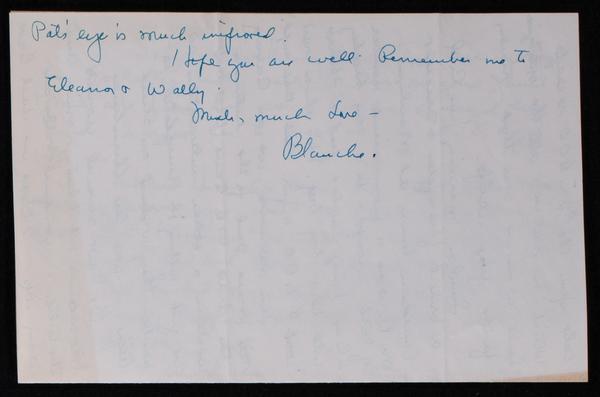 Pat's eye is much improved.
I hope you are well. Remember me to
Eleanor & Wally.
Much, much love –
Blanche.